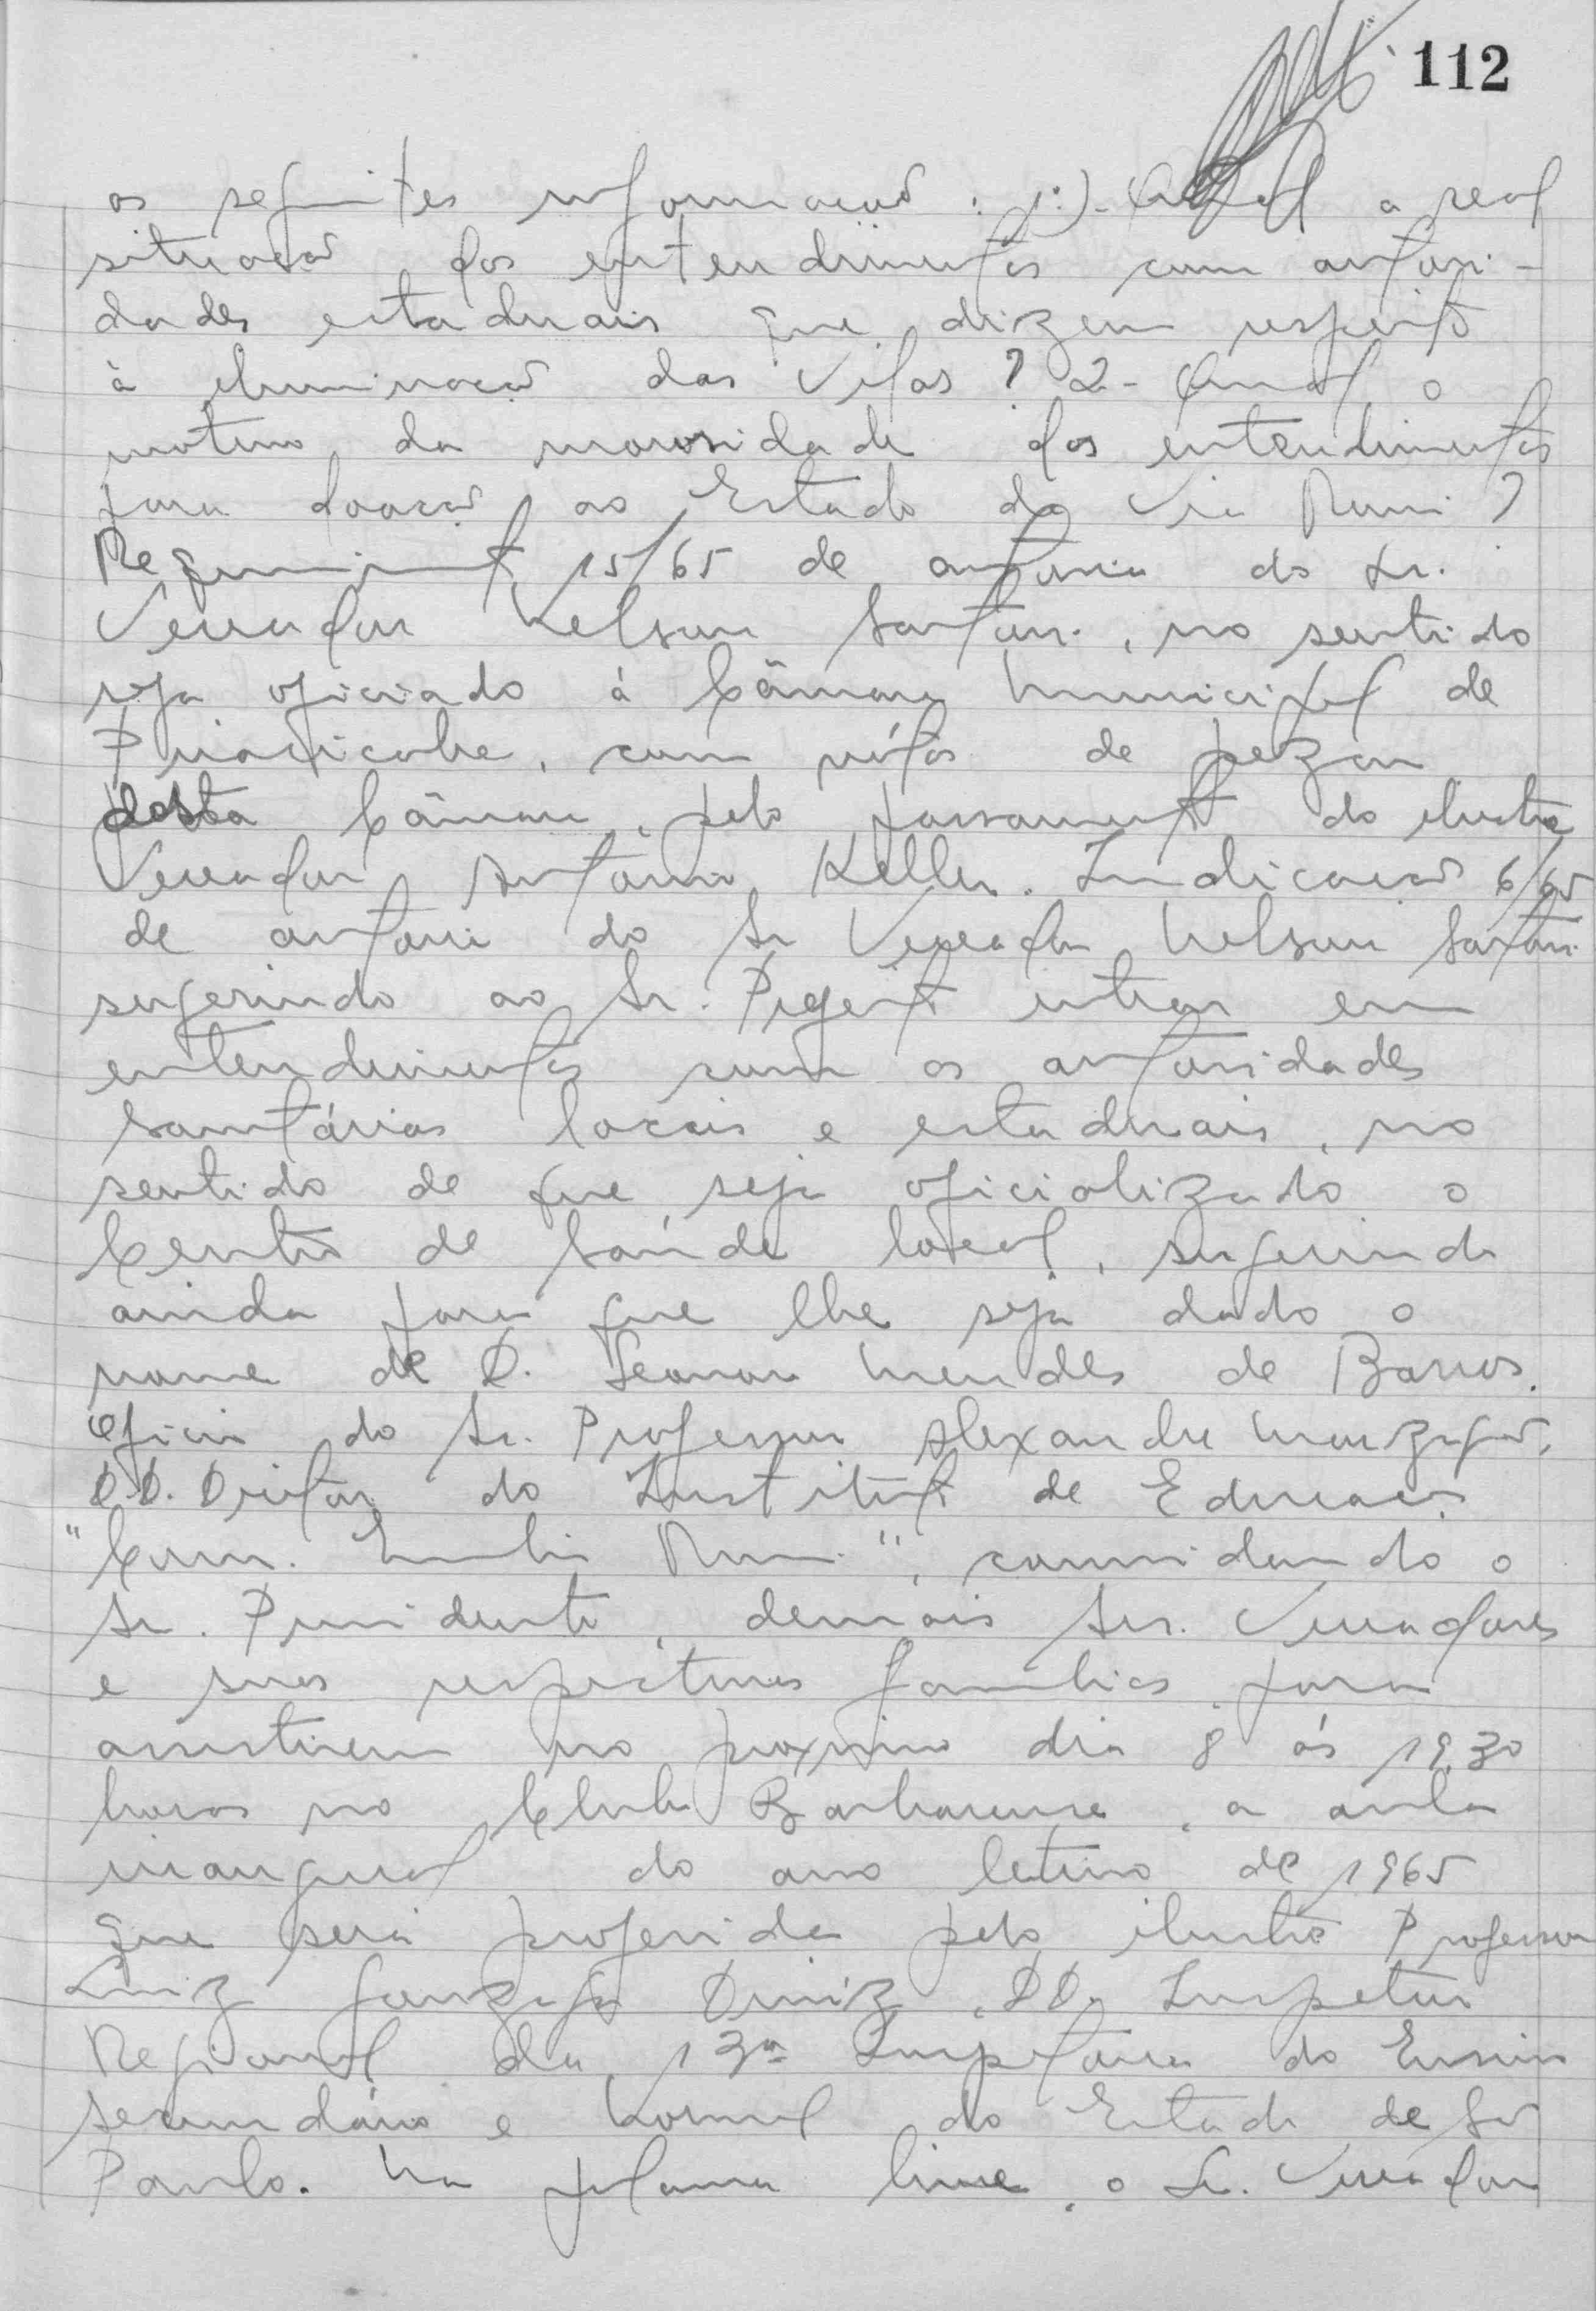 112
as seguintes informações: 1º)- Qual a real
situação dos entendimentos com autori-
dades estaduais que dizem respeito
à iluminação das Vilas? 2- Qual o
motivo da morosidade dos entendimentos
para doação ao Estado da Via Romi?
Requerimento 15/65 de autoria do Sr.
Vereador Nelson Sartori, no sentido
seja oficiado á Câmara Municipal de
Piracicaba, com vótos de pezar
desta Câmara, pelo passamento do ilustre
Vereador Antônio Keller. Indicação 6/65
de autoria do Sr Vereador Nelson Sartori
sugerindo ao Sr. Prefeito entrar em
entendimentos com as autoridades
Sanitárias locais e estaduais, no
sentido de que seja oficializado o
Centro de Saúde local, sugerindo
ainda para que lhe seja dado o
nome de D. Leonor Mendes de Barros.
Oficio do Sr. Professor Alexandre
D.D. Diretor do Instituto de Educação
"Com. Emilio Romi", convidando o
Sr. Presidente, demais Srs. Vereadores
e suas respectivas familias para
assistirem no proximo dia 8 ás 19,30
horas no Clube Barbarense, a aula
inaugural do ano letivo de 1965
que será proferida pelo ilustre Professor
Luiz Gonzaga Diniz, DD. Inspetor
Regional da 13ª Inspetoria do Ensino
Secundário e Normal do Estado de São
Paulo. Na palavra livre, o Sr. Vereador